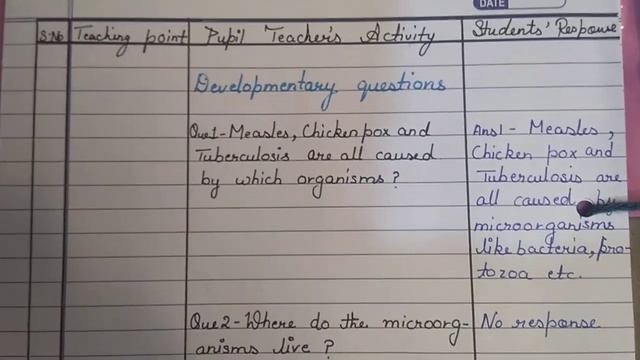 DATE
S.No Teaching point Pupil Teacher's Activity Students' Response
Developmentary questions
Que1-Measles, Chicken pox and
Tuberculosis are all caused
by which organisms?
Ans1- Measles,
Chicken pox and
Tuberculosis are
all caused by
microorganisms
like bacteria, pro-
tozoa etc.
Que2-Where do the microorg-
anisms live?
No response